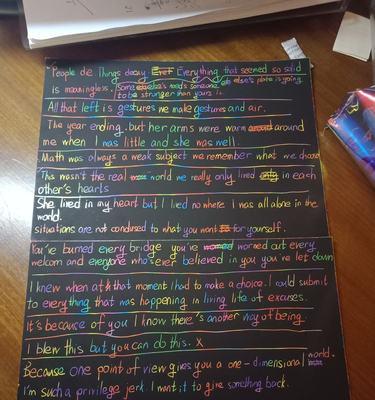 People die Things decay Everything that seemed so solid
is meaningless. Some else's needs someone else's pain is going
to be stronger than yours is
All that left is gestures we make gestures and air.
The year ending. but her arms were warm around
me when I was little and she was well.
Math was always a weak subject we remember what we choose
This wasn't the real world we really only lived in each
other's hearts
She lived in my heart but I lived no where I was all alone in the
world.
situations are not condused to what you want for yourself.
You've burned every bridge you've worned out every
welcom and everyone who's ever believed in you you've let down
I knew when at that moment I had to make a choice. I could submit
to everything that was happening in living life of excuses.
It's because of you I know there's another way of being.
I blew this but you can do this. x
Because one point of view gives you a one-dimensional world.
I'm such a privilege jerk I want it to give something back.